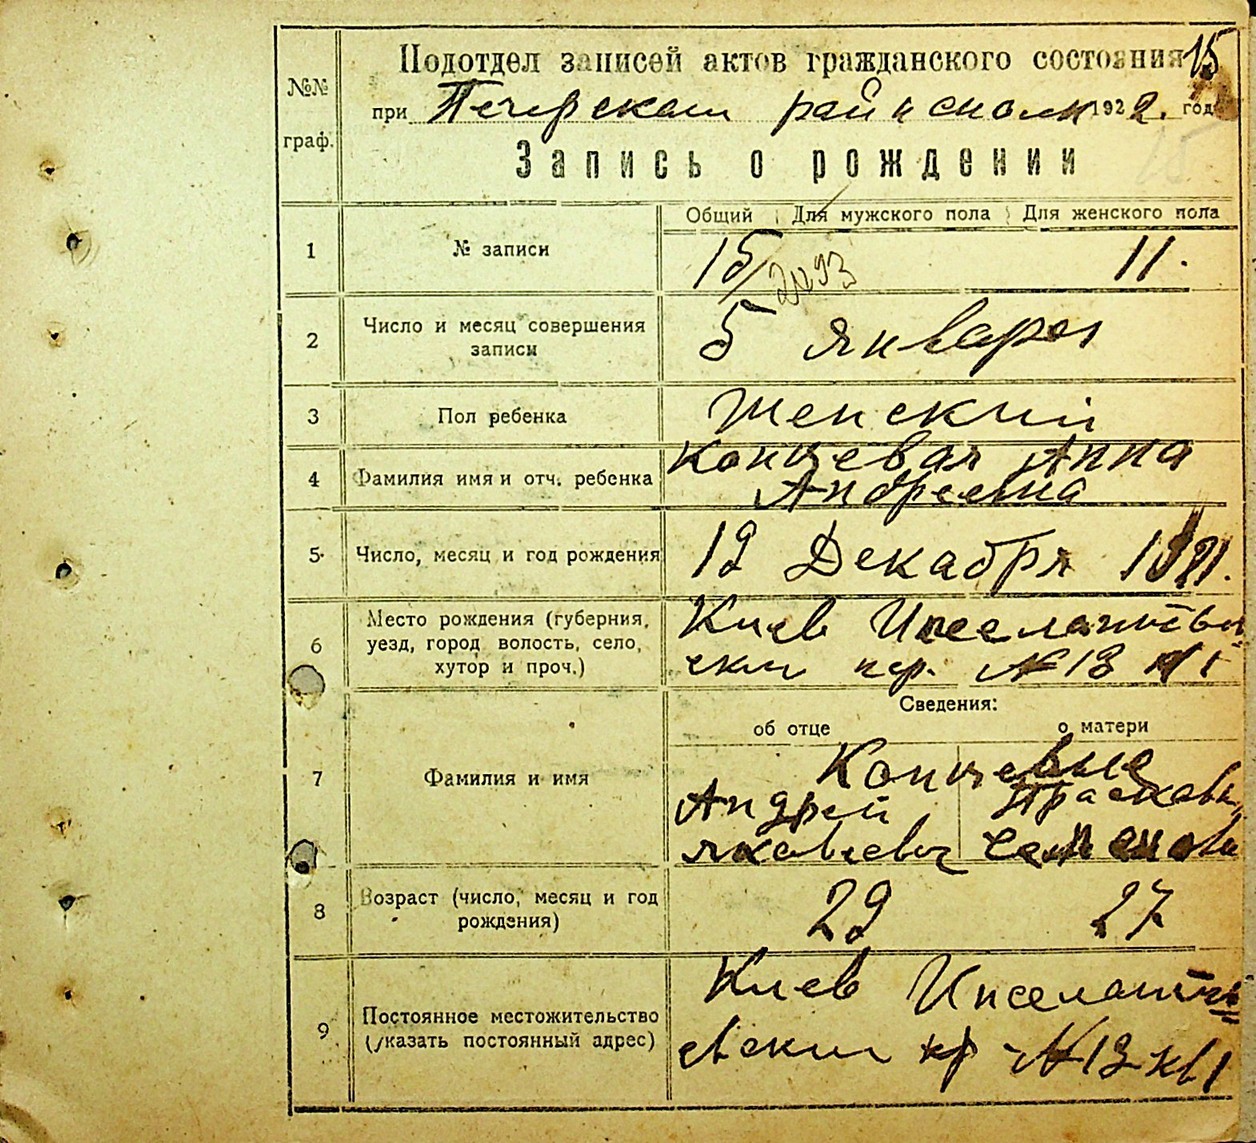 Подотдел записей актов гражданского состояния 15
№№ граф.
при Печерском райисполк 1922. год
Запись о рождении
Общий Для мужского пола Для женского пола
1 № записи 15 11.
2 Число и месяц совершения записи 5 Января
3 Пол ребенка Женский
4 Фамилия имя и отч. ребенка Концевая Анна
Андреевна
5 Число, месяц и год рождения 12 Декабря 1921.
6 Место рождения (губерния, Киев Ипселантьев
уезд, город волость, село, ский пер. № 13
хутор и проч.)
Сведения:
об отце о матери
7 Фамилия и имя Концевые
Андрей Прасковья
Яковлевич Семенова
8 Возраст (число, месяц и год рождения) 29 27
9 Постоянное местожительство Киев
(указать постоянный адрес) евский пр № 13 кв 1